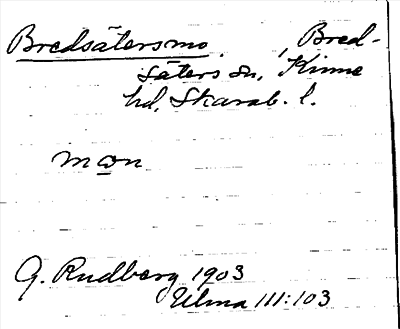 Bredsätersmo, Bred-
säters sn, Kinne
hd, Skarab. l.
mɷn
G. Rudberg 1903
Ulma 111:103